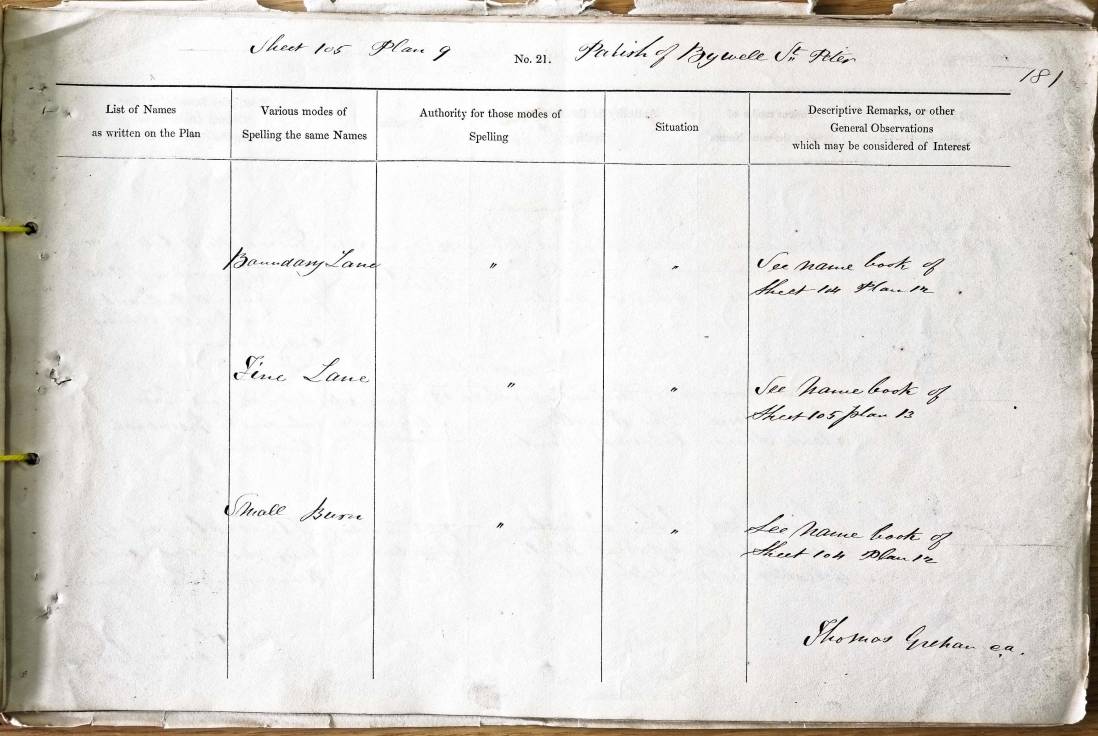 Sheet 105 Plan 9 No. 21. Parish of Bywell St. Peter
181
List of Names
as written on the Plan
Various modes of
Spelling the same Names
Authority for those modes of
Spelling
Situation
Descriptive Remarks, or other
General Observations
which may be considered of Interest
Boundary Lane " " See name book of
Sheet 104 Plan 12
Fine Lane " " See Name book of
Sheet 105 plan 13
Small Burn " " See Name book of
Sheet 104 Plan 12
Thomas Grehan ca.